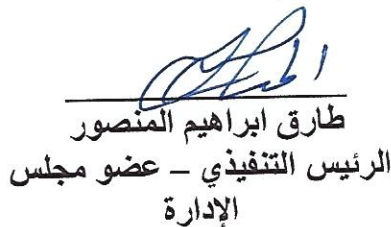 طارق ابراهيم المنصور
الرئيس التنفيذي – عضو مجلس
الإدارة